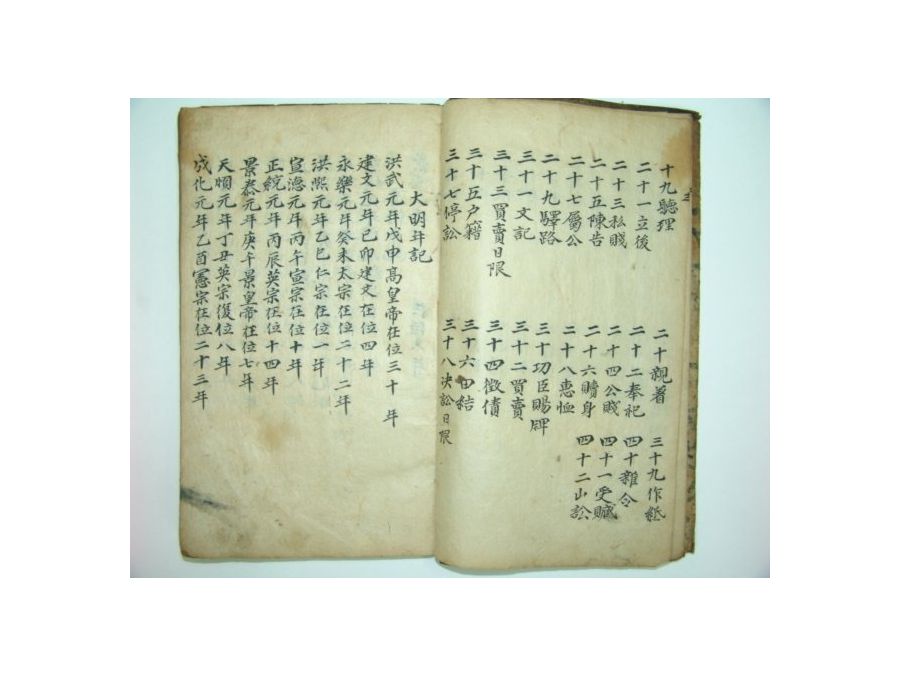 十九聽理
二十親着
二十一立後
二十二奉祀
二十三私賤
二十四公賤
二十五陳告
二十六贖身
二十七屬公
二十八惠恤
二十九驛路
三十功臣賜牌
三十一文記
三十二買賣
三十三買賣日限
三十四徵債
三十五戶籍
三十六田結
三十七停訟
三十八決訟日限
三十九作紙
四十雜令
四十一受贓
四十二山訟
大明年記
洪武元年戊申高皇帝在位三十年
建文元年己卯建文在位四年
永樂元年癸未太宗在位二十二年
洪熙元年乙巳仁宗在位一年
宣德元年丙午宣宗在位十年
正統元年丙辰英宗在位十四年
景泰元年庚午景皇帝在位七年
天順元年丁丑英宗復位八年
成化元年乙酉憲宗在位二十三年